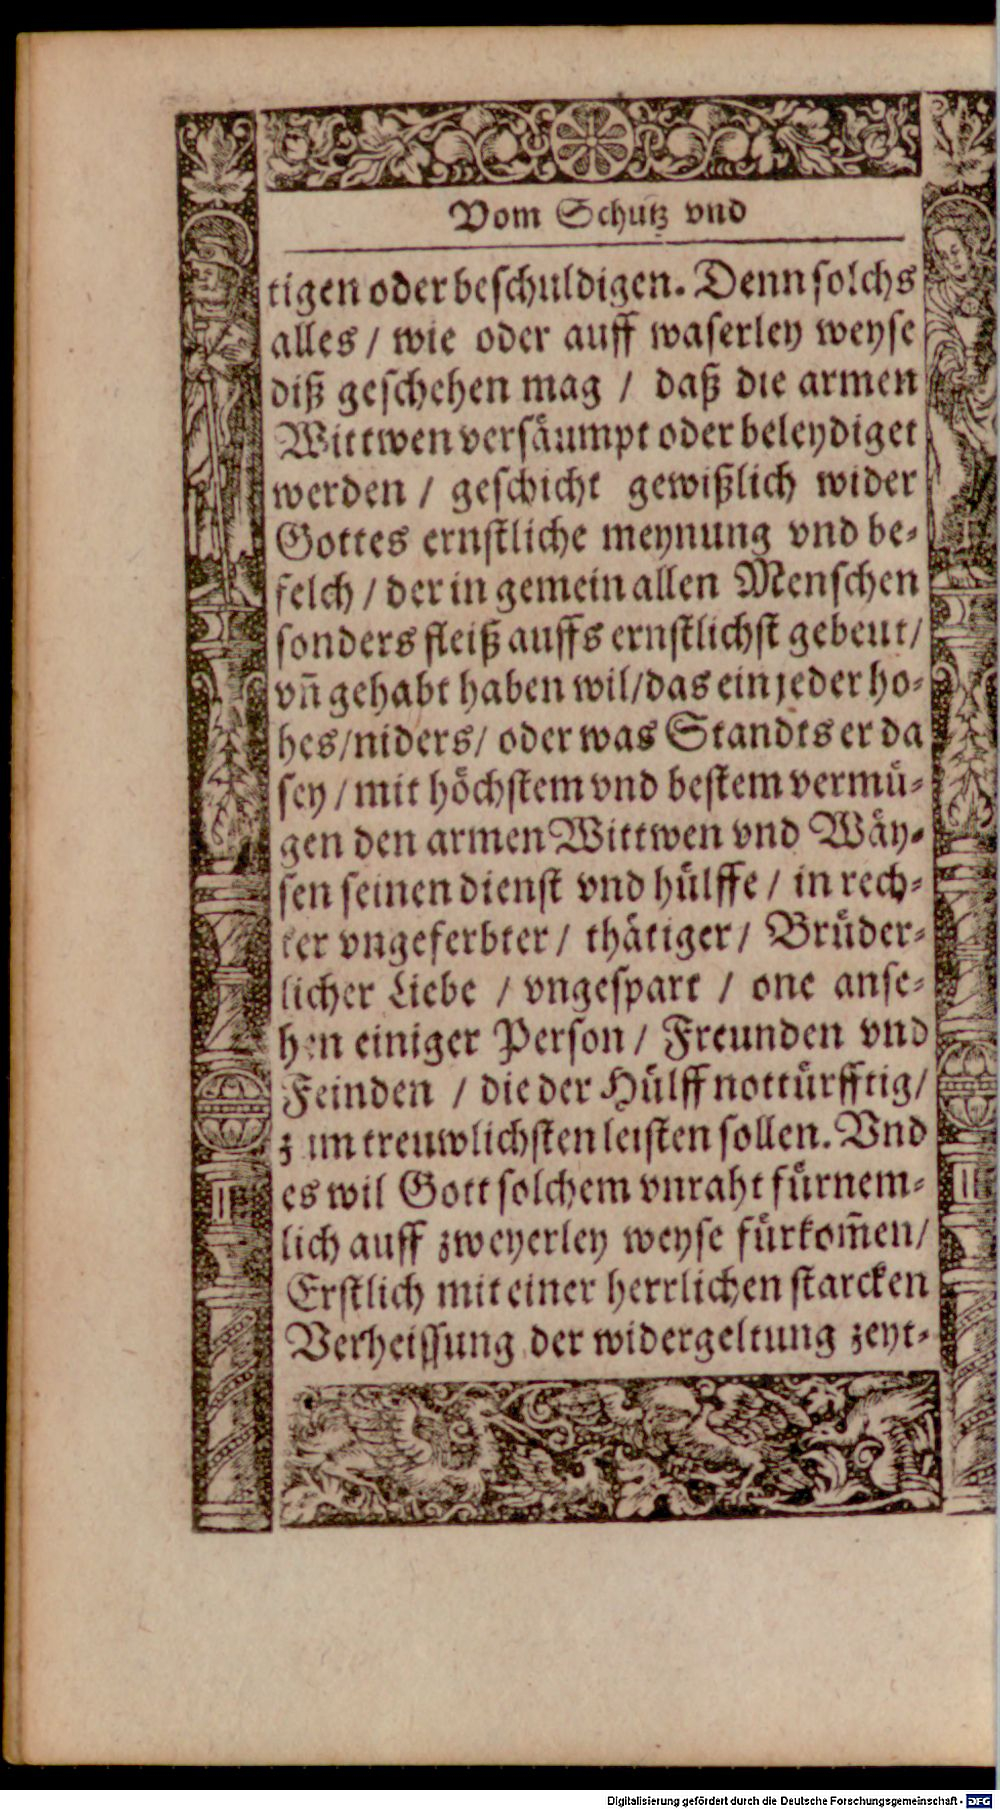 Vom Schutz vnd
tigen oder beſchuldigen. Denn ſolchs
alles / wie oder auff waſerley weyſe
diß geſchehen mag / daß die armen
Wittwen verſaͤumpt oder beleydiget
werden / geſchicht gewißlich wider
Gottes ernſtliche meynung vnd be⸗
felch / der in gemein allen Menſchen
ſonders fleiß auffs ernſtlichſt gebeut /
vñ gehabt haben wil / das ein jeder ho⸗
hes / niders / oder was Standts er da
ſey / mit hoͤchſtem vnd beſtem vermuͤ⸗
gen den armen Wittwen vnd Waͤy⸗
ſen ſeinen dienſt vnd huͤlffe / in rech⸗
ter vngeferbter / thaͤtiger / Bruͤder⸗
licher Liebe / vngeſpart / one anſe⸗
hen einiger Perſon / Freunden vnd
Feinden / die der Huͤlff nottuͤrfftig /
zum treuwlichſten leiſten ſollen. Vnd
es wil Gott ſolchem vnraht fuͤrnem⸗
lich auff zweyerley weyſe fuͤrkom̃en /
Erſtlich mit einer herrlichen ſtarcken
Verheiſſung der widergeltung zeyt⸗
Digitalisierung gefördert durch die Deutsche Forschungsgemeinschaft - DFG